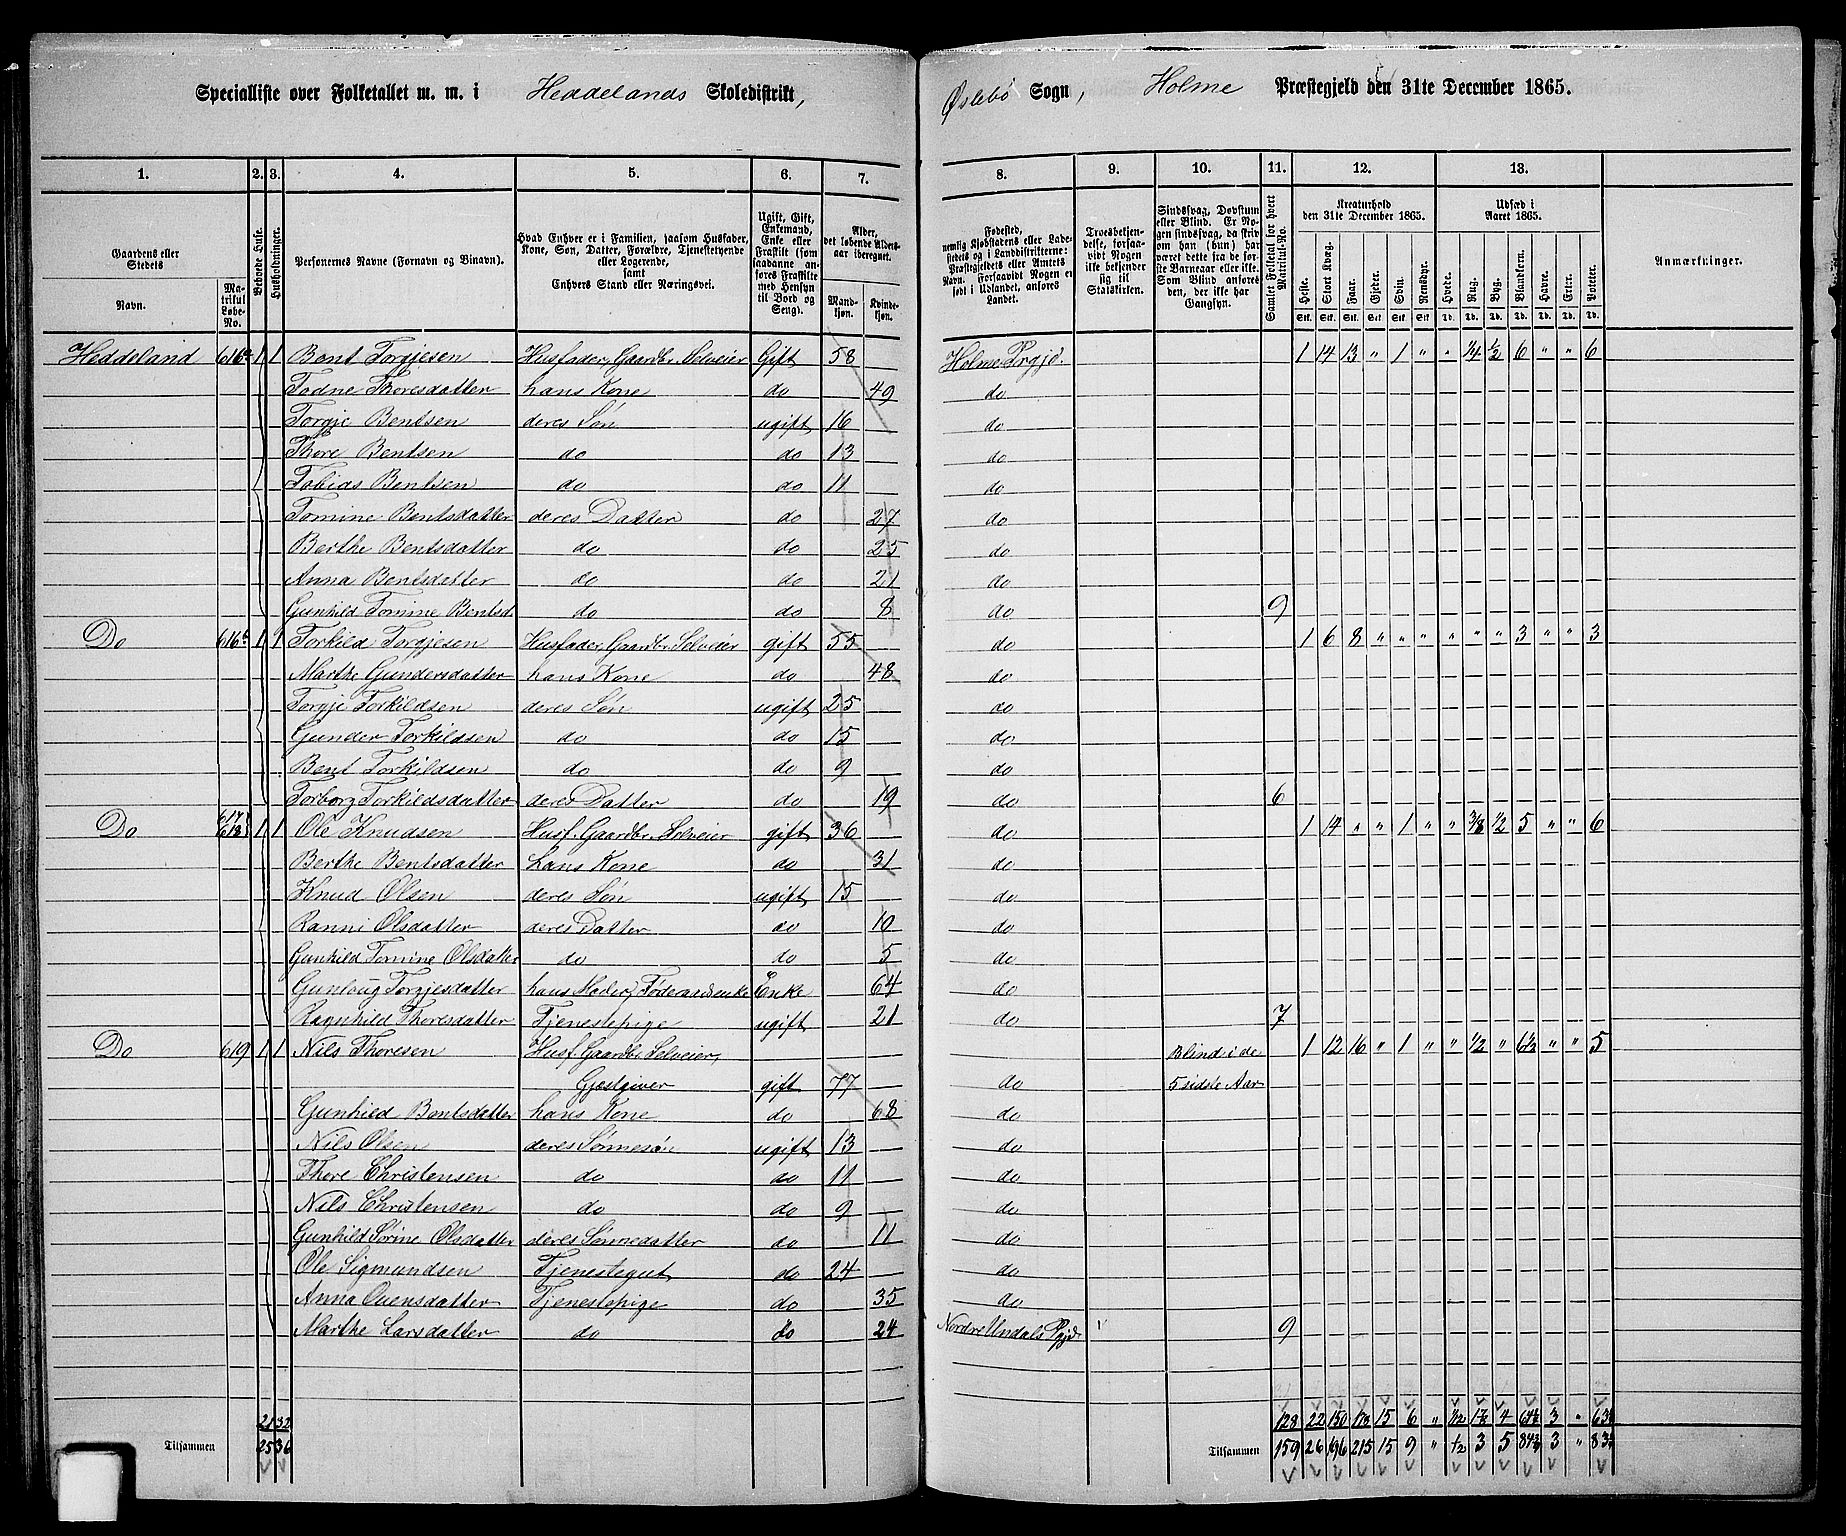 Specialliste over Folketallet m. m. i Heddelands Skoledistrikt, Øslebø Sogn, Holme Præstegjeld den 31te December 1865.
1. 2. 3. 4. 5. 6. 7. 8. 9. 10. 11. 12. 13.
Gaardens eller Stedets Navn. Matrikul Løbe-No. Beboede Huse. Husholdninger. Personernes Navne (Fornavn og Binavn). Hvad Enhver er i Familien, saasom Husfader, Kone, Søn, Datter, Forældre, Tjenestetyende eller Logerende, samt Enhvers Stand eller Næringsvei. Ugift, Gift, Enkemand, Enke eller Fraskilt (som saadanne anføres Fraskilte med Hensyn til Bord og Seng). Alder, det løbende Alders-aar iberegnet. Mandkjøn. Kvindekjøn. Fødested, nemlig Kjøbstadens eller Ladestedets og i Landdistrikterne: Præstegjeldets eller Amtets Navn. Forsaavidt Nogen er født i Udlandet, anføres Landet. Troesbekjendelse, forsaavidt Nogen ikke bekjender sig til Statskirken. Sindssvag, Døvstum eller Blind. Er Nogen sindssvag, da skriv om han (hun) har været dette fra de første Barneaar eller ikke. Som Blind anføres den, der ikke har Gangsyn. Samlet Folketal for hvert Matrikul-No. Kreaturhold den 31te December 1865. Udsæd i Aaret 1865. Anmærkninger.
Heste. Stort Kvæg. Faar. Gjeder. Svin. Rensdyr. Hvede. Rug. Byg. Blandkorn. Havre. Erter. Poteter.
Stk. Stk. Stk. Stk. Stk. Stk. Td. Td. Td. Td. Td. Td. Td.
Heddeland 616a 1 1 Bent Torgjesen Husfader, Gaardbr. Selveier Gift 58 Holme Prgjd. 1 14 13 " 1 " " 1/4 1/2 6 " " 6
Todne Thoresdatter hans Kone do 49 do
Torgje Bentsen deres Søn ugift 16 do
Thore Bentsen do do 13 do
Tobias Bentsen do do 11 do
Tomine Bentsdatter deres Datter do 27 do
Berthe Bentsdatter do do 25 do
Anna Bentsdatter do do 21 do
Gunhild Tomine Bentsd. do do 8 do 9
Do 616b 1 1 Torkild Torgjesen Husfader, Gaardbr. Selveier gift 55 do 1 6 8 " " " " " " 3 " " 3
Marthe Gundersdatter hans Kone do 48 do
Torgje Torkildsen deres Søn ugift 25 do
Gunder Torkildsen do do 15 do
Bent Torkildsen do do 9 do
Torborg Torkildsdatter deres Datter do 19 do 6
Do 617 618 1 1 Ole Knudsen Husf. Gaardbr. Selveier gift 36 do 1 14 " " 1 " " 3/8 1/2 5 " " 6
Berthe Bentsdatter hans Kone do 31 do
Knud Olsen deres Søn ugift 15 do
Ranni Olsdatter deres Datter do 10 do
Gunhild Tomine Olsdatter do do 5 do
Gunloug Torgjesdatter hans Moder, Føderaadsenke Enke 64 do
Ragnhild Thoresdatter Tjenestepige ugift 21 do 7
Do 619 1 1 Nils Thoresen Husf. Gaardbr. Selveier, Blind i de 1 12 16 " 1 " " 1/2 " 6 1/2 " " 5
Gjestgiver gift 77 do 5 sidste Aar
Gunhild Bentsdatter hans Kone do 68 do
Nils Olsen deres Sønnesøn ugift 13 do
Thore Christensen do do 11 do
Nils Christensen do do 9 do
Gunhild Sørine Olsdatter deres Sønnedatter do 11 do
Ole Sigmundsen Tjenestegut do 24 do
Anna Ouensdatter Tjenestepige do 35 do
Marthe Larsdatter do do 24 Nordre Undals Pgjd. 9
21 32 128 22 150 173 15 6 " 1/2 4 3 "
Tilsammen 25 36 Tilsammen 159 26 196 215 15 9 " 1/2 3 5 3 "